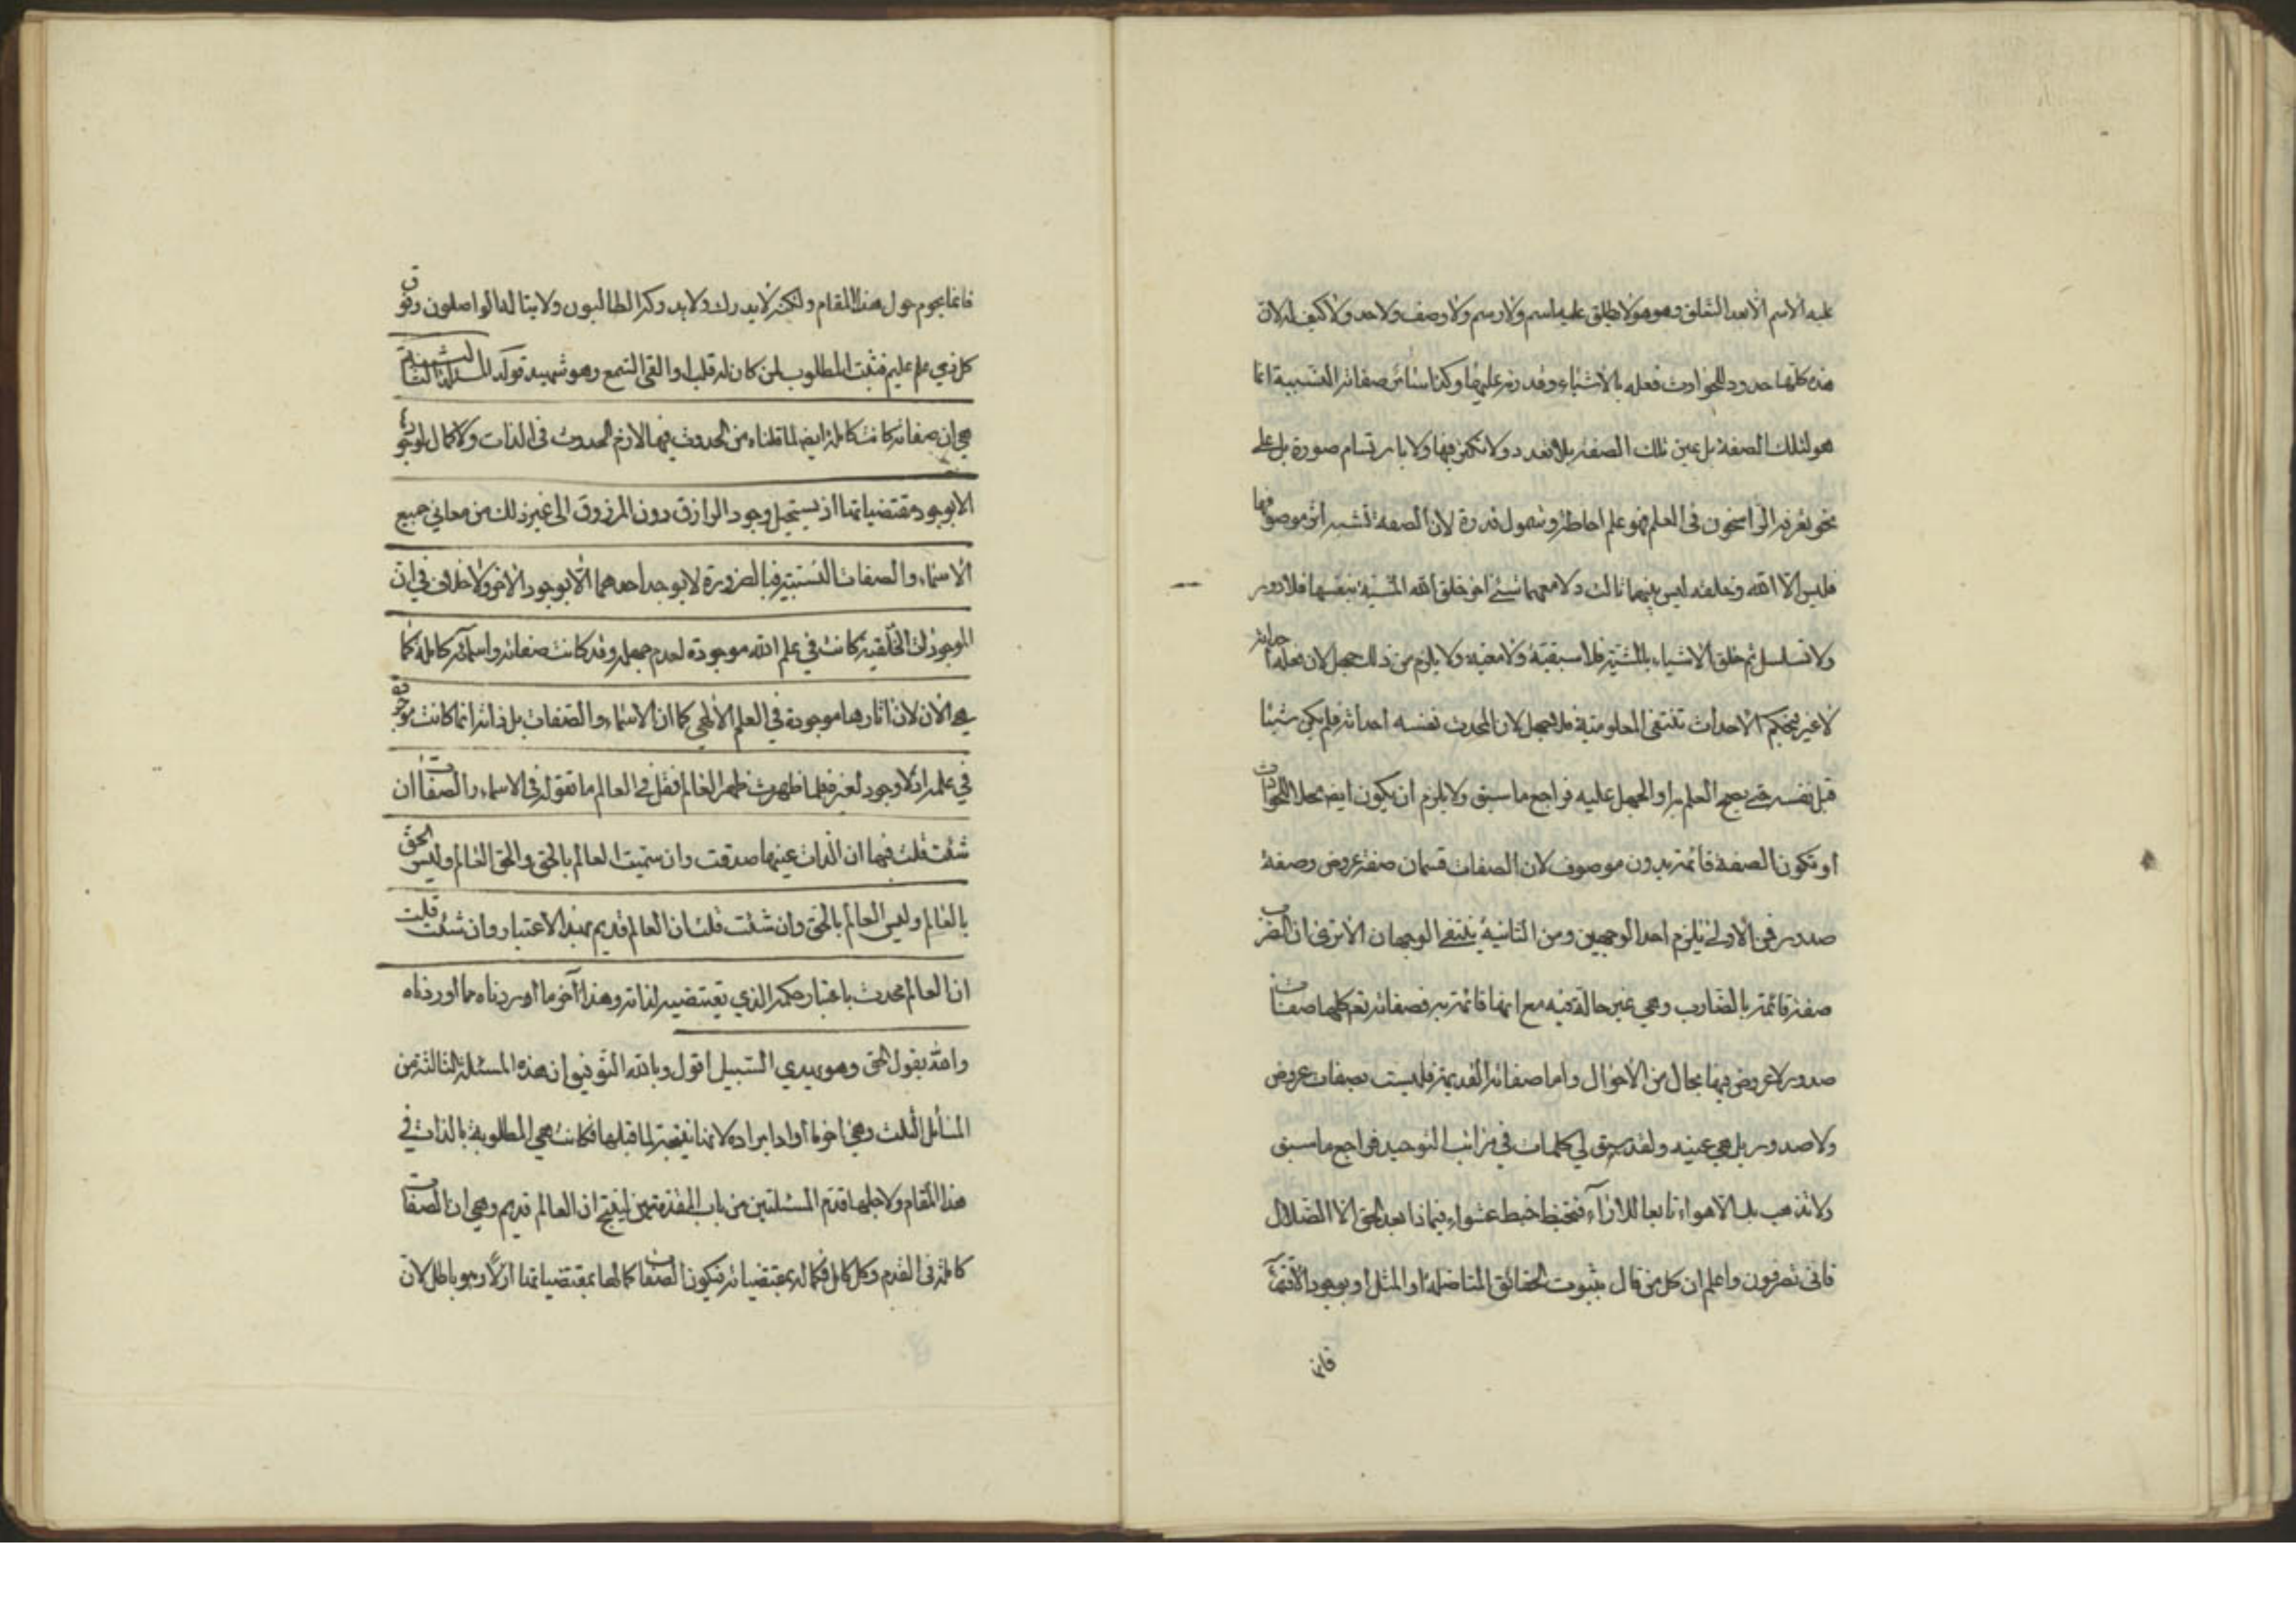 عليه الاسم الا بعد التعلق وهو هو لا يطلق عليه اسم ولا رسم ولا وصف ولا حد ولا كيف له لان
هذه كلها حدود الحوادث فعلمه بالاشياء وقدرته عليها وكذا سائر صفاته النسبية انما
هو لتلك الصفة بل عين تلك الصفة بلا تعدد ولا تكثر فيها ولا بارتسام صورة بل على
نحو يعرفه الراسخون في العلم فهو علم احاطة وشمول قدرة لان الصفة تشبه اثر موصوفها
فليس الا الله وخلقه ليس بينهما ثالث ولا معهما شيء اخر خلق الله المشية بنفسها فلا دور
ولا تسلسل ثم خلق الاشياء بالمشية فلا سبقية ولا معية ولا يلزم من ذلك جهل لان
لا غير فبحكم الاحداث تنتفي المعلومية فلا جهل لان المحدث نفسه احداثه فلم يكن شيئا
قبل نفسه حتى يصح العلم به او الجهل عليه فراجع ما سبق ولا يلزم ان يكون ايضا محلا للحوادث
او تكون الصفة قائمة بدون موصوف لان الصفات قسمان صفة عروض وصفة
صدور فمن الاولى يلزم احد الوجهين ومن الثانية ينتفي الوجهان الا ترى ان الضرب
صفة قائمة بالضارب وهي غير حالة فيه مع انها قائمة به فصفاته تعم كلها صفات
صدور لا عروض فيها بحال من الاحوال واما صفاته القديمة فليست بصفات عروض
ولا صدور بل هي عينه ولقد سبق لي كلمات في مراتب التوحيد فراجع ما سبق
ولا تذهب بك الاهواء تابعا للاراء فتخبط خبط عشواء فماذا بعد الحق الا الضلال
فانى تصرفون واعلم ان كل من قال بثبوت الحقائق المتاصلة او المثل او بوجود
فانما
فانما يحوم حول هذا المقام ولكنه لا يدرك ولا يدركه الطالبون ولا يناله الواصلون وفوق
كل ذي علم عليم فثبت المطلوب لمن كان له قلب او القى السمع وهو شهيد قوله المسئلة الثالثة
هي ان صفاته كانت كاملة ايضا لما قلناه من الحدوث فيها لازم الحدوث في الذات ولا كمال لوجودها
الا بوجود مقتضياتها اذ يستحيل وجود الرازق دون المرزوق الى غير ذلك من معاني جميع
الاسماء والصفات النسبية فبالضرورة لا يوجد احدهما الا بوجود الاخر ولا خلاف في ان
الموجودات الخلقية كانت في علم الله موجودة لعدم جهله وقد كانت صفاته واسمائه كاملة كما
هي الان لان اثارها موجودة في العلم الالهي كما ان الاسماء والصفات بل ذاته انما كانت موجودة
في علمه اذ لا وجود لغيره فلما ظهرت ظهر العالم فقل في العالم ما تقوله في الاسماء والصفات ان
شئت قلت فيها ان الذات عينها صدقت وان سميت العالم بالحق والحق العالم وليس الحق
بالعالم وليس العالم بالحق وان شئت قلت ان العالم قديم بهذا الاعتبار وان شئت قلت
ان العالم محدث باعتبار حكمه الذي تقتضيه لذاته وهذا آخر ما اوردناه مما اوردناه
والله يقول الحق وهو يهدي السبيل اقول وبالله التوفيق ان هذه المسئلة الثالثة من
المسائل الثلث وهي اخر ما اراد ايراده لانها نتيجة لما قبلها فكانت هي المطلوبة بالذات في
هذا المقام ولاجلها قدم المسئلتين من باب المقدمتين لينتج ان العالم قديم وهي ان الصفات
كاملة في القدم وكل كامل فكماله بمقتضياته فيكون الصفات كمالها بمقتضياتها ازلا وهو باطل لان